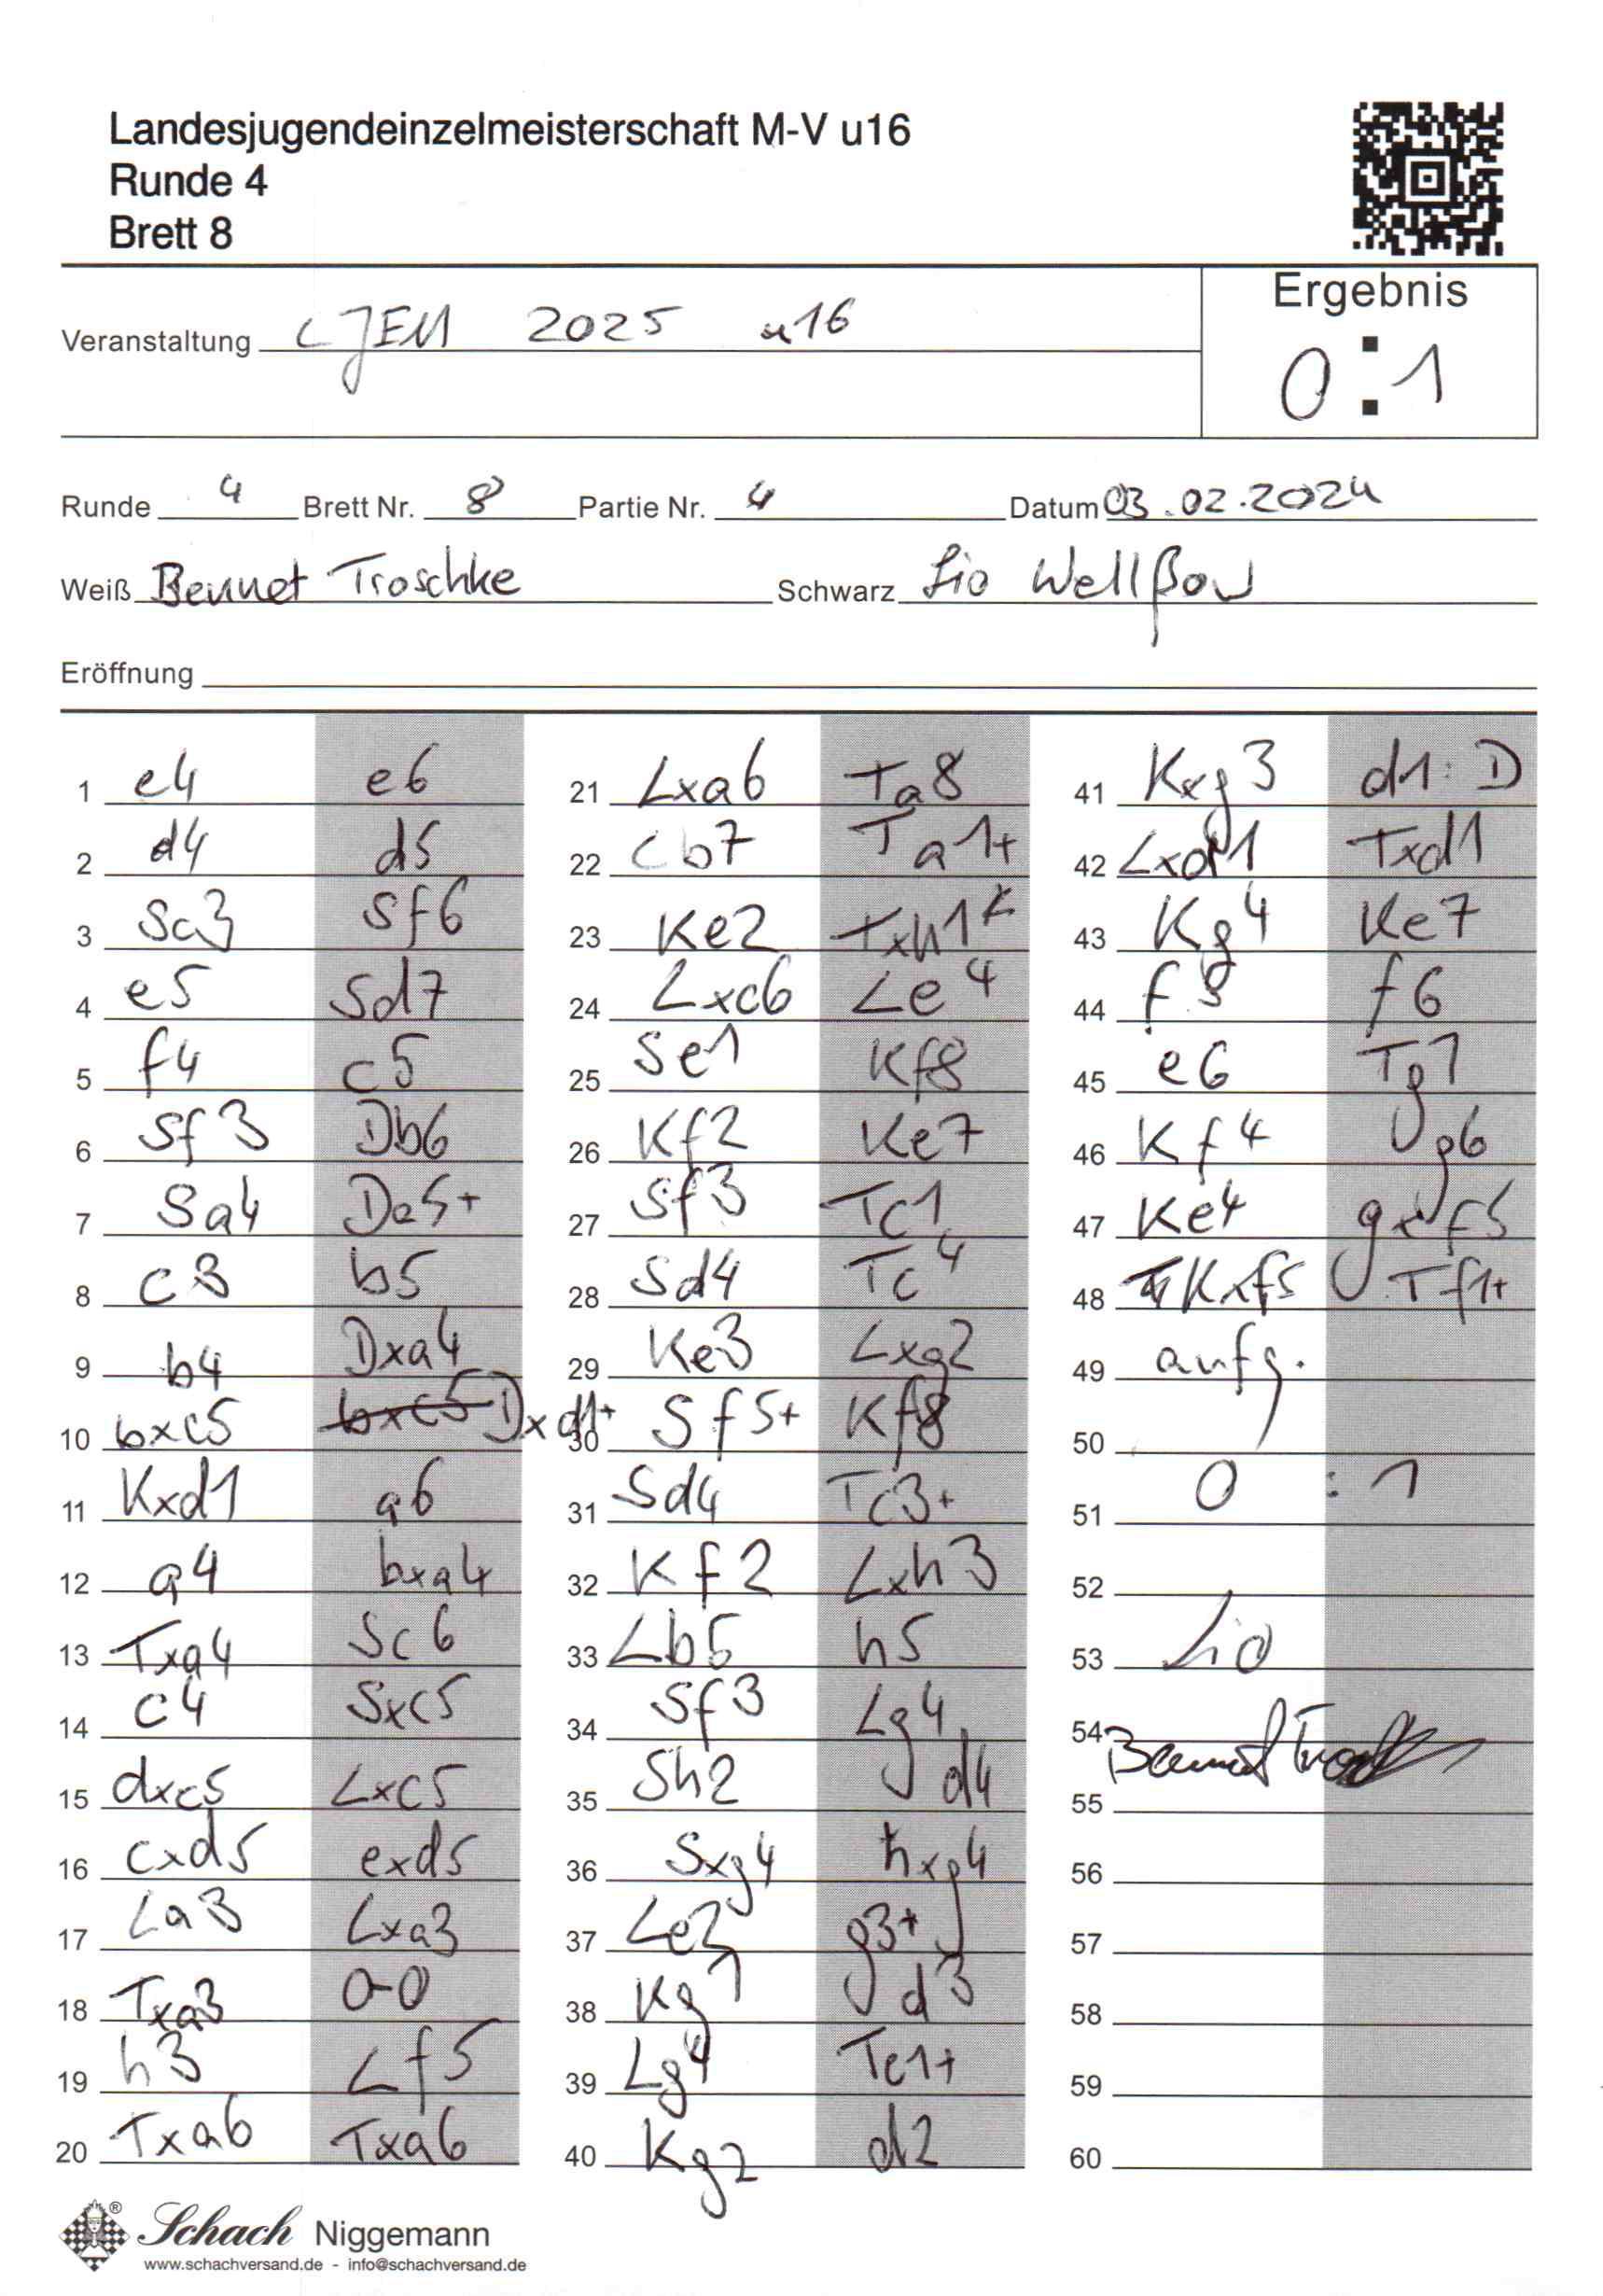 Landesjugendeinzelmeisterschaft M-V u16
Runde 4
Brett 8
Ergebnis
Veranstaltung LJEM 2025 u16
0 : 1
Runde 4 Brett Nr. 8 Partie Nr. 4 Datum 03.02.2024
Weiß Bennet Troschke Schwarz Lio Wellßow
Eröffnung
1 e4 e6
2 d4 d5
3 Sc3 Sf6
4 e5 Sd7
5 f4 c5
6 Sf3 Db6
7 Sa4 Da5+
8 c3 b5
9 b4 Dxa4
10 bxc5 bxc5 Dxd1+
11 Kxd1 a6
12 a4 bxa4
13 Txa4 Sc6
14 c4 Sxc5
15 dxc5 Lxc5
16 cxd5 exd5
17 La3 Lxa3
18 Txa3 0-0
19 h3 Lf5
20 Txa6 Txa6
21 Lxa6 Ta8
22 Lb7 Ta1+
23 Ke2 Txh1
24 Lxc6 Le4
25 Se1 Kf8
26 Kf2 Ke7
27 Sf3 Tc1
28 Sd4 Tc4
29 Ke3 Lxg2
30 Sf5+ Kf8
31 Sd4 Tc3+
32 Kf2 Lxh3
33 Lb5 h5
34 Sf3 Lg4
35 Sh2 d4
36 Sxg4 hxg4
37 Le2 g3+
38 Kg1 d3
39 Lg4 Tc1+
40 Kg2 d2
41 Kxg3 d1:D
42 Lxd1 Txd1
43 Kg4 Ke7
44 f5 f6
45 e6 Tg1
46 Kf4 g6
47 Ke4 gxf5
48 Kxf5 Tf1+
49 aufg.
50
51 0 : 1
52
53 Lio
54 Bennet
55
56
57
58
59
60
Schach Niggemann
www.schachversand.de - info@schachversand.de